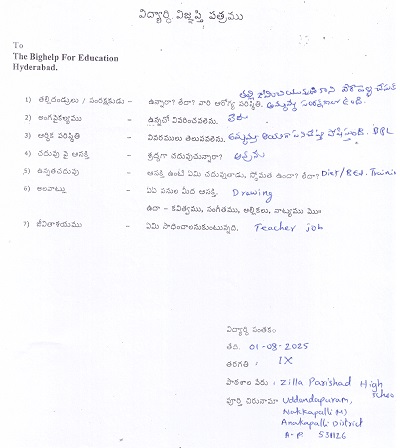 విద్యార్థి విజ్ఞప్తి పత్రము
To
The Bighelp For Education
Hyderabad.
1) తల్లిదండ్రులు / సంరక్షకుడు - ఉన్నారా? లేదా? వారి ఆరోగ్య పరిస్థితి.
2) అంగవైకల్యము - ఉన్నచో వివరించవలెను. లేదు
3) ఆర్థిక పరిస్థితి - వివరములు తెలుపవలెను.
4) చదువు పై ఆసక్తి - శ్రద్ధగా చదువుచున్నారా?
5) ఉన్నతచదువు - ఆసక్తి ఉంటే ఏమి చదువుతాడు, స్తోమత ఉందా? లేదా? Diet/BEd. Training
6) అలవాట్లు - ఏఏ పనుల మీద ఆసక్తి. Drawing
ఉదా - కవిత్వము, సంగీతము, అల్లికలు, నాట్యము మొ॥
7) జీవితాశయము - ఏమి సాధించాలనుకుంటున్నది. Teacher job
విద్యార్థి సంతకం
తేది. 01-08-2025
తరగతి : IX
పాఠశాల పేరు : Zilla Parishad High
పూర్తి చిరునామా Uddandapuram,
Nakkapalli M)
Anakapalli District
A-P 531126